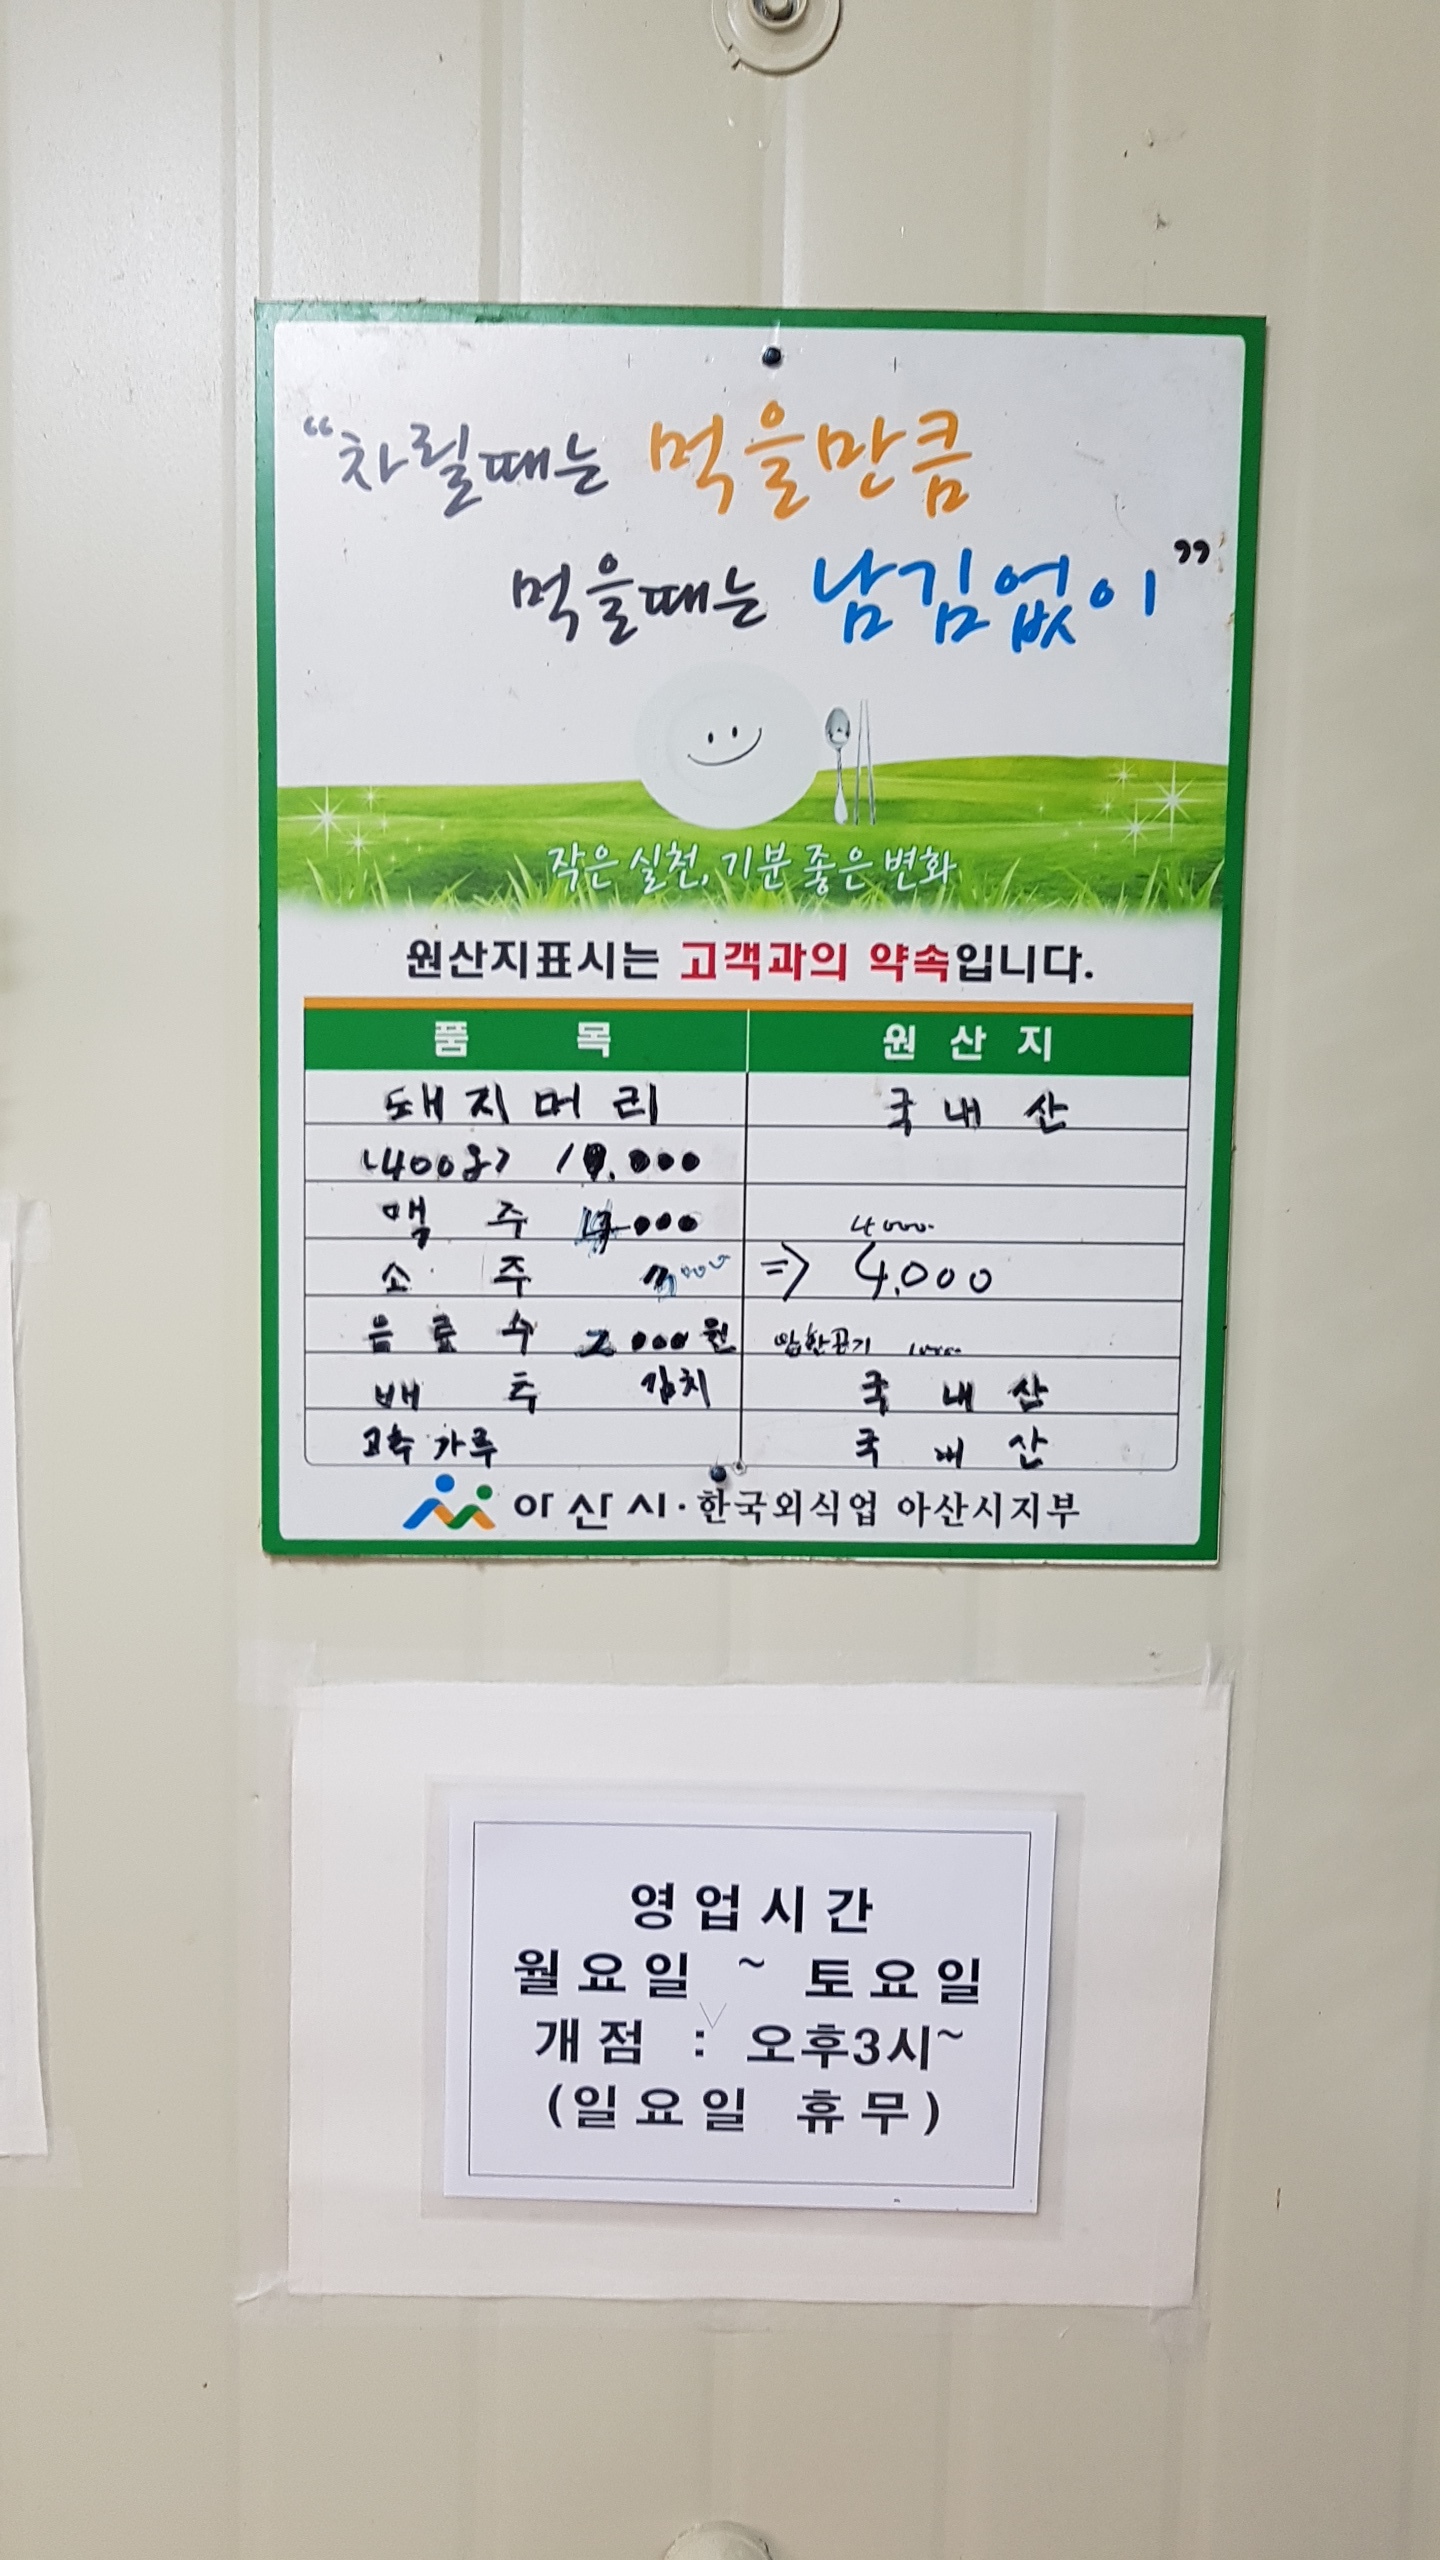 “차릴때는 먹을만큼
먹을때는 남김없이”
작은 실천, 기분 좋은 변화
원산지표시는 고객과의 약속입니다.
품 목 원 산 지
돼지머리 국내산
<400g>
맥 주 4000
소 주 => 4,000
음료수 2000원
배 추 김치 국내산
고추가루 국내산
아산시·한국외식업 아산시지부
영업시간
월요일 ~ 토요일
개점 : 오후3시~
(일요일 휴무)